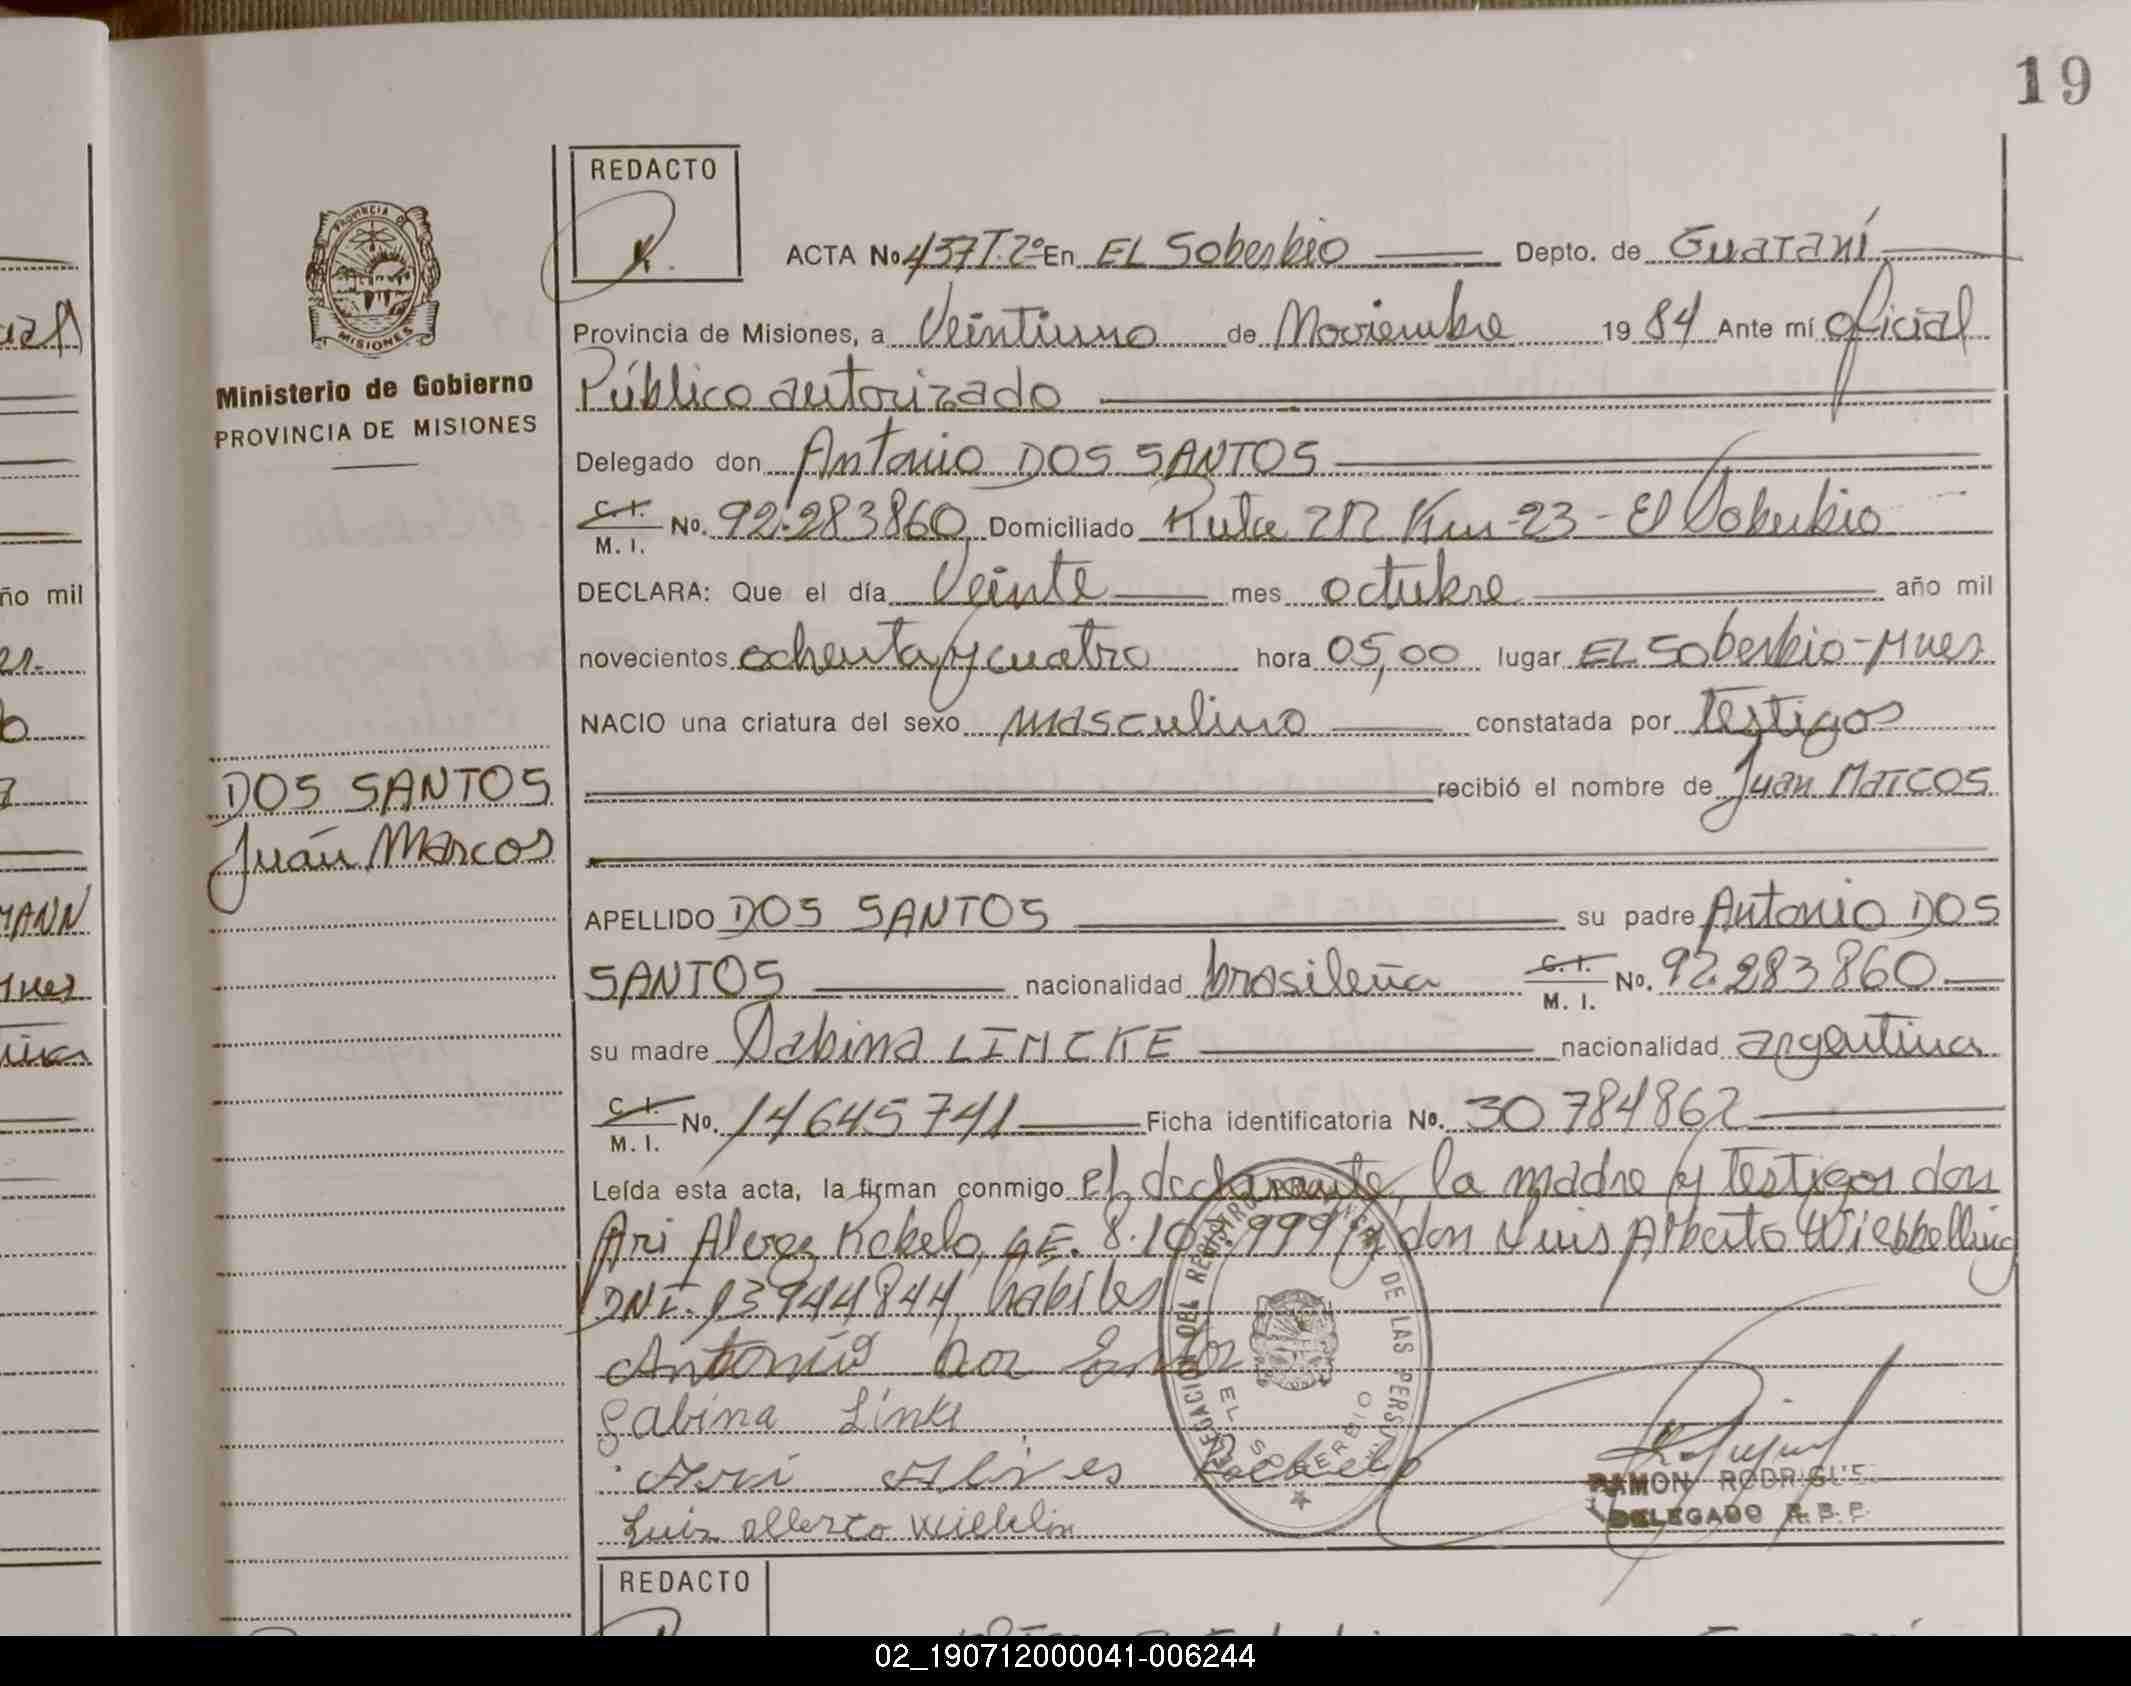 19
REDACTO
ACTA No 437 T. 2º En EL Soberbio Depto. de Guaraní
Provincia de Misiones, a Veintiuno de Noviembre 19 84 Ante mí oficial
Público autorizado
Ministerio de Gobierno
PROVINCIA DE MISIONES
Delegado don Antonio DOS SANTOS
C. I.
M. I. No. 92.283860 Domiciliado Ruta 212 Km-23-El Soberbio
DECLARA: Que el día Veinte mes octubre año mil
novecientos ochenta y cuatro hora 05,00 lugar EL Soberbio-Mnes
NACIO una criatura del sexo masculino constatada por testigos
recibió el nombre de Juan Marcos
DOS SANTOS
Juán Marcos
APELLIDO DOS SANTOS su padre Antonio DOS
SANTOS nacionalidad brasileña C. I.
M. I. No. 92.283860
su madre Sabina LINCKE nacionalidad argentina
C. I.
M. I. No. 14645741 Ficha identificatoria No. 30.784862
Leída esta acta, la firman conmigo el declarante, la madre y testigos don
Ari Alves Rebelo, 8.10 999 y don Luis Alberto Wiebbelling
DNI. 13944844, habiles
Antonio dos
Sabina Linke
Ari Alves Rebelo
Luiz
DELEGACION DEL REGISTRO PROVINCIAL DE LAS PERSONAS
EL SOBERBIO
RAMON RODRIGUES
DELEGADO
REDACTO
MISIONES
ño mil
MANN
02_190712000041-006244